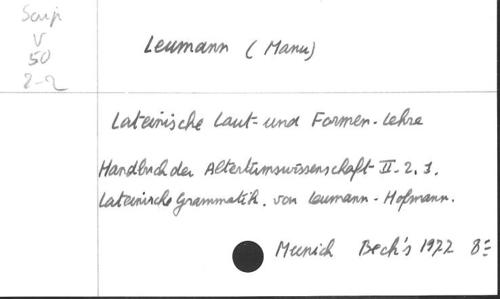 Scrip
V
50
2-2
Leumann (Manu)
Lateinische Laut- und Formen-lehre
Handbuch der Altertumswissenschaft II-2, 1.
Lateinische Grammatik. von Leumann-Hofmann.
Munich Beck's 1972 8=